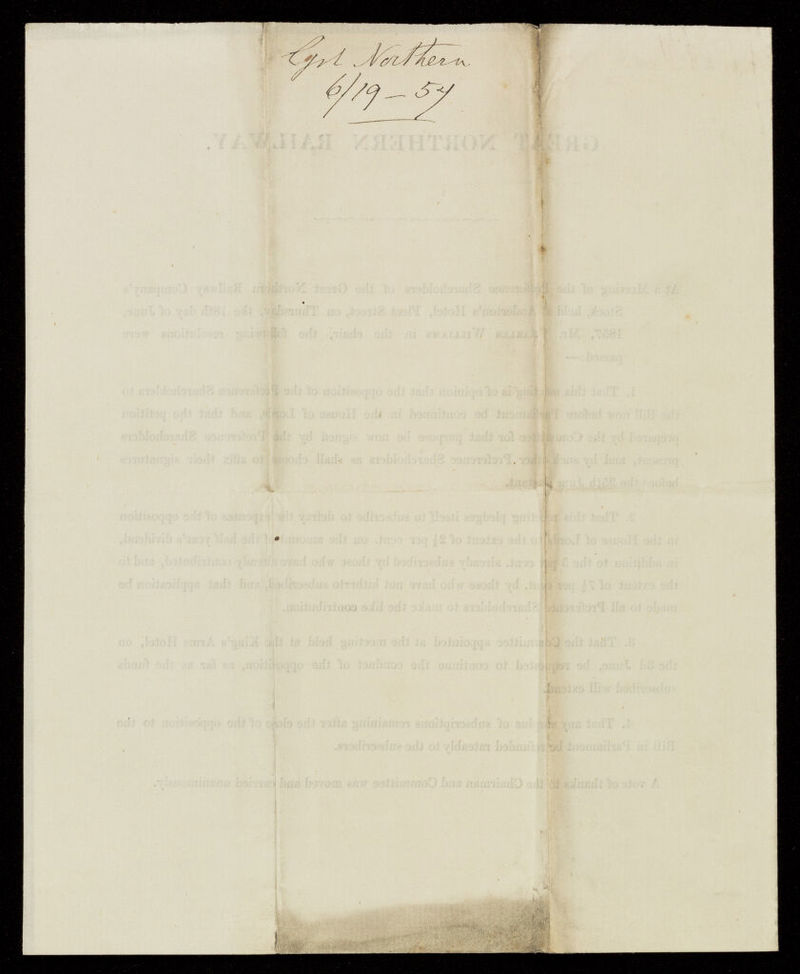 Gt Northern
6/19 – 57
GREAT NORTHERN RAILWAY.
At a Meeting of the Preference Shareholders of the Great Northern Railway Company's
Stock, held at Anderton's Hotel, Fleet Street, on Thursday, the 18th day of June,
1857, Mr. CHARLES WILLIAMS in the chair, the following resolutions were
passed:—
1. That this meeting is of opinion that the opposition of the Preference Shareholders to
the Bill now before Parliament be continued in the House of Lords, and that the petition
prepared by the Committee for that purpose be now signed by the Preference Shareholders
present, and by such other Preference Shareholders as shall choose to affix their signatures
before the 25th June instant.
2. That this meeting pledges itself to subscribe to defray the expenses of the opposition
in the House of Lords to the extent of 2½ per cent. on the amount of the half year's dividend,
in addition to the 5 per cent. already subscribed by those who have already contributed, and to
the extent of 7½ per cent. by those who have not hitherto subscribed, and that application be
made to all Preference Shareholders to make the like contribution.
3. That the Committee appointed at the meeting held at the King's Arms Hotel, on
the 3d June, be requested to continue the conduct of the opposition, as far as the funds
subscribed will extend.
4. That any surplus of subscriptions remaining after the close of the opposition to the
Bill in Parliament be refunded rateably to the subscribers.
A vote of thanks to the Chairman and Committee was moved and carried unanimously.